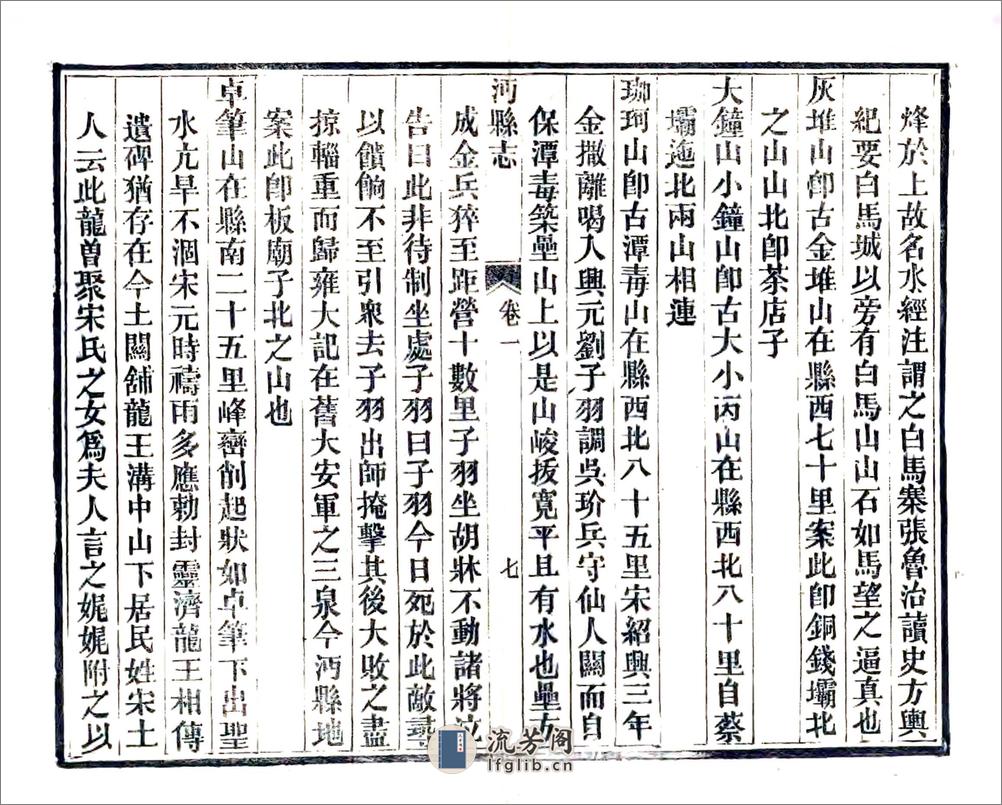 烽於上故名水經注謂之白馬寨張魯治讀史方輿
紀要白馬城以旁有白馬山山石如馬望之逼真也
灰堆山卽古金堆山在縣西七十里案此卽銅錢壩北
之山山北卽茶店子
大鐘山小鐘山卽古大小丙山在縣西北八十里自蔡
壩迤北兩山相連
珈珂山卽古潭毒山在縣西北八十五里宋紹興三年
金撒離喝入興元劉子羽調吳玠兵守仙人關而自
保潭毒築壘山上以是山峻拔寬平且有水也壘方
沔縣志
卷一
七
成金兵猝至距營十數里子羽坐胡牀不動諸將泣
告曰此非待制坐處子羽曰子羽今日死於此敵尋
以饋餉不至引衆去子羽出師掩擊其後大敗之盡
掠輜重而歸雍大記在舊大安軍之三泉今沔縣地
案此卽板廟子北之山也
卓筆山在縣南二十五里峰巒削起狀如卓筆下出聖
水亢旱不涸宋元時禱雨多應勅封靈濟龍王相傳
遺碑猶存在今土關舖龍王溝中山下居民姓宋土
人云此龍曾聚宋氏之女爲夫人言之娓娓附之以
流芳阁
lfglib.cn